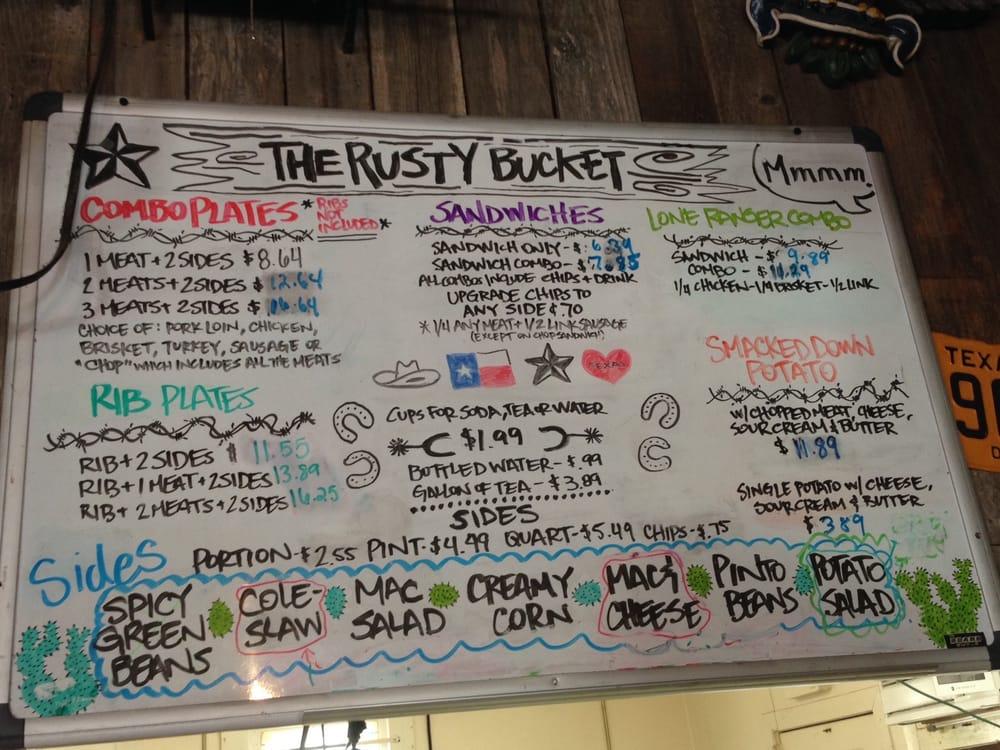 THE RUSTY BUCKET
Mmmm.
COMBO PLATES *RIBS NOT INCLUDED*
1 MEAT + 2 SIDES $8.64
2 MEATS + 2 SIDES $12.64
3 MEATS + 2 SIDES $16.64
CHOICE OF: PORK LOIN, CHICKEN,
BRISKET, TURKEY, SAUSAGE OR
"CHOP" WHICH INCLUDES ALL THE MEATS
RIB PLATES
RIB + 2 SIDES $11.55
RIB + 1 MEAT + 2 SIDES 13.89
RIB + 2 MEATS + 2 SIDES 16.25
SANDWICHES
SANDWICH ONLY - $ 6.39
SANDWICH COMBO - $7.85
ALL COMBOS INCLUDE CHIPS + DRINK
UPGRADE CHIPS TO
ANY SIDE $.70
* 1/4 ANY MEAT + 1/2 LINK SAUSAGE
(EXCEPT ON CHOP SANDWICH)
TEXAS
CUPS FOR SODA, TEA OR WATER
$1.99
BOTTLED WATER - $.99
GALLON OF TEA - $3.89
LONE RANGER COMBO
SANDWICH - $ 9.89
COMBO - $11.29
1/4 CHICKEN - 1/4 BRISKET - 1/2 LINK
SMACKED DOWN
POTATO
W/ CHOPPED MEAT, CHEESE,
SOUR CREAM & BUTTER
$ 11.89
SINGLE POTATO W/ CHEESE,
SOUR CREAM & BUTTER
$ 3.89
SIDES
Sides
PORTION - $2.55 PINT - $4.49 QUART - $5.49 CHIPS - $.75
SPICY
GREEN
BEANS
COLE-
SLAW
MAC
SALAD
CREAMY
CORN
MAC &
CHEESE
PINTO
BEANS
POTATO
SALAD
TEXA
9